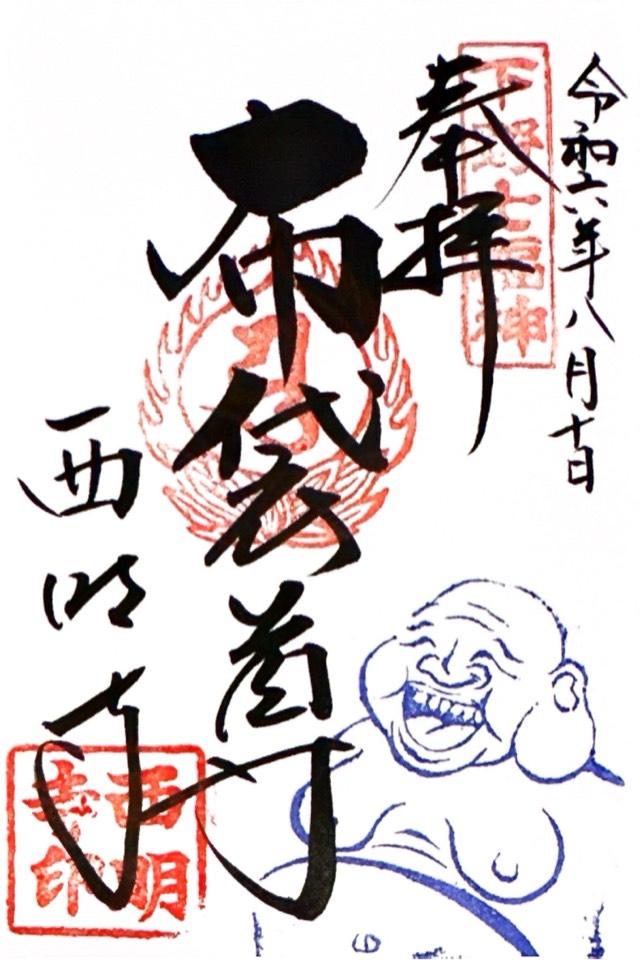 令和六年八月十日
奉拝
下野七福神
布袋尊
西明寺
西明
寺印